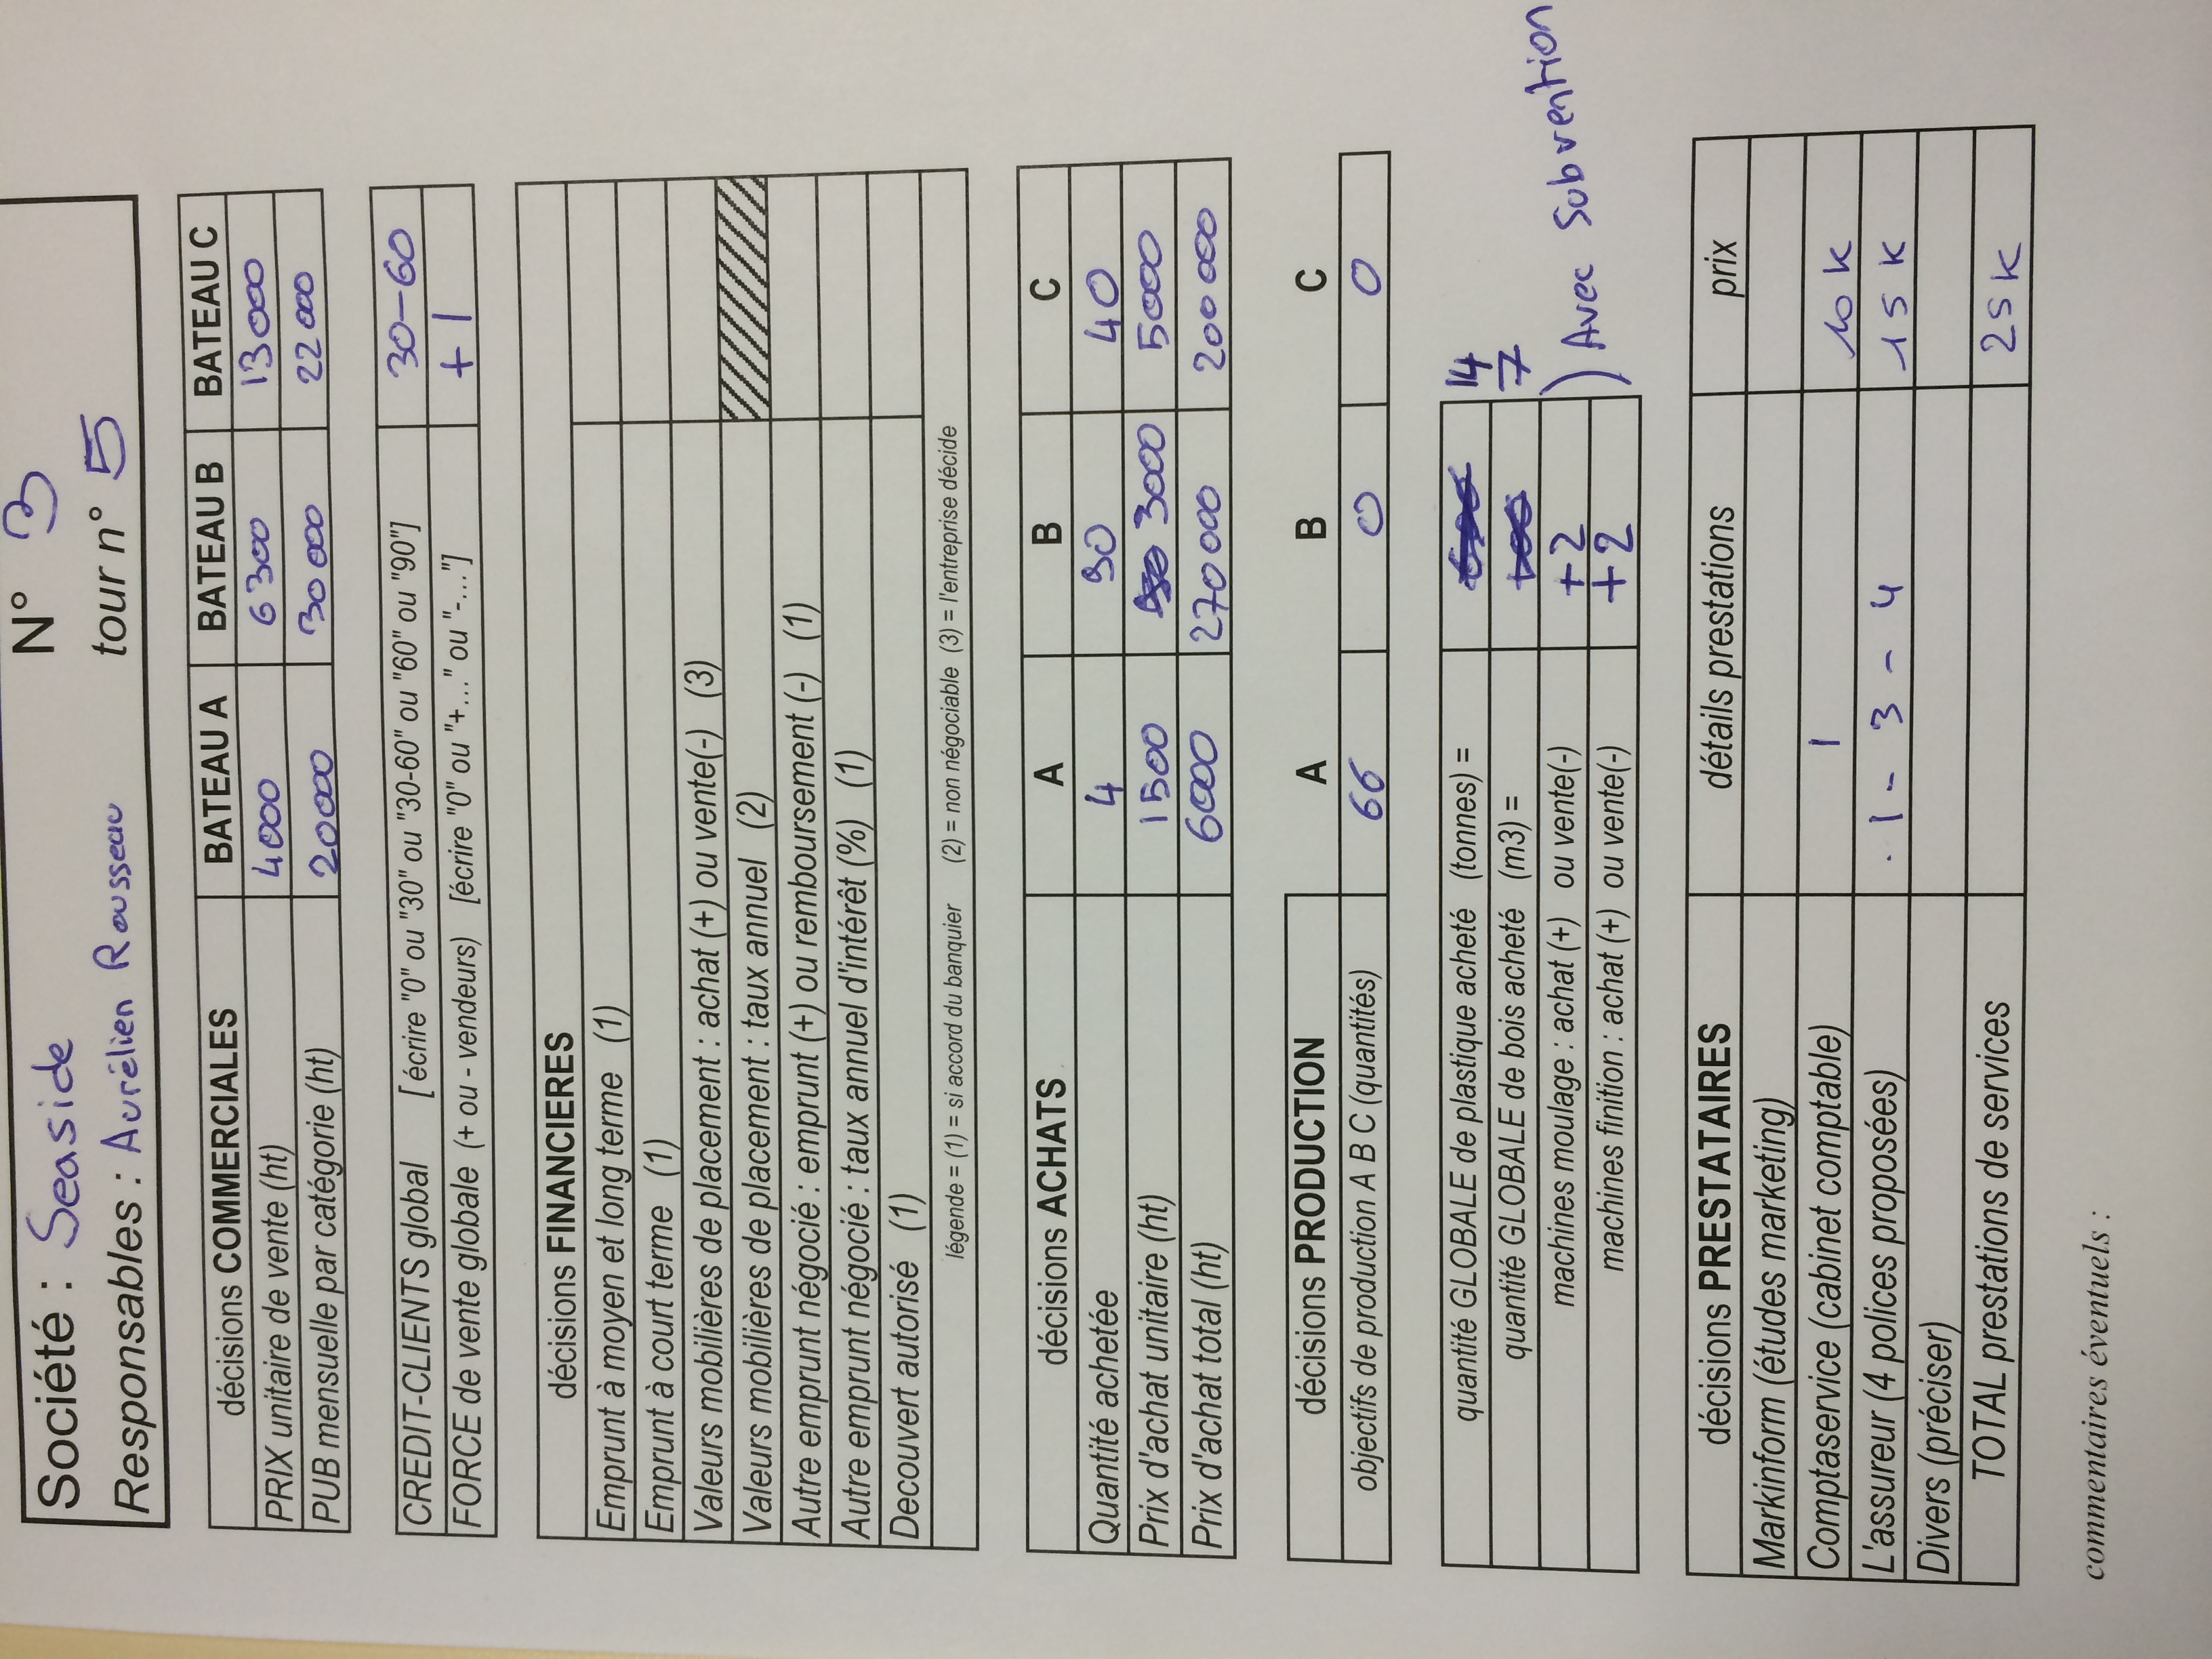 Société : Seaside N° 3
Responsables : Aurélien Rousseau tour n° 5
décisions COMMERCIALES BATEAU A BATEAU B BATEAU C
PRIX unitaire de vente (ht) 4000 6300 13000
PUB mensuelle par catégorie (ht) 20000 30000 22000
CREDIT-CLIENTS global [ écrire "0" ou "30" ou "30-60" ou "60" ou "90"] 30-60
FORCE de vente globale (+ ou - vendeurs) [écrire "0" ou "+..." ou "-..."] +1
décisions FINANCIERES
Emprunt à moyen et long terme (1)
Emprunt à court terme (1)
Valeurs mobilières de placement : achat (+) ou vente(-) (3)
Valeurs mobilières de placement : taux annuel (2)
Autre emprunt négocié : emprunt (+) ou remboursement (-) (1)
Autre emprunt négocié : taux annuel d'intérêt (%) (1)
Decouvert autorisé (1)
légende = (1) = si accord du banquier (2) = non négociable (3) = l'entreprise décide
décisions ACHATS A B C
Quantité achetée 4 90 40
Prix d'achat unitaire (ht) 1500 3000 5000
Prix d'achat total (ht) 6000 270000 200000
décisions PRODUCTION A B C
objectifs de production A B C (quantités) 66 0 0
quantité GLOBALE de plastique acheté (tonnes) = 14
quantité GLOBALE de bois acheté (m3) = 7
machines moulage : achat (+) ou vente(-) +2
machines finition : achat (+) ou vente(-) +2
) Avec Subvention
décisions PRESTATAIRES détails prestations prix
Markinform (études marketing)
Comptaservice (cabinet comptable) 1 10 K
L'assureur (4 polices proposées) 1 - 3 - 4 15 K
Divers (préciser)
TOTAL prestations de services 25 K
commentaires éventuels :